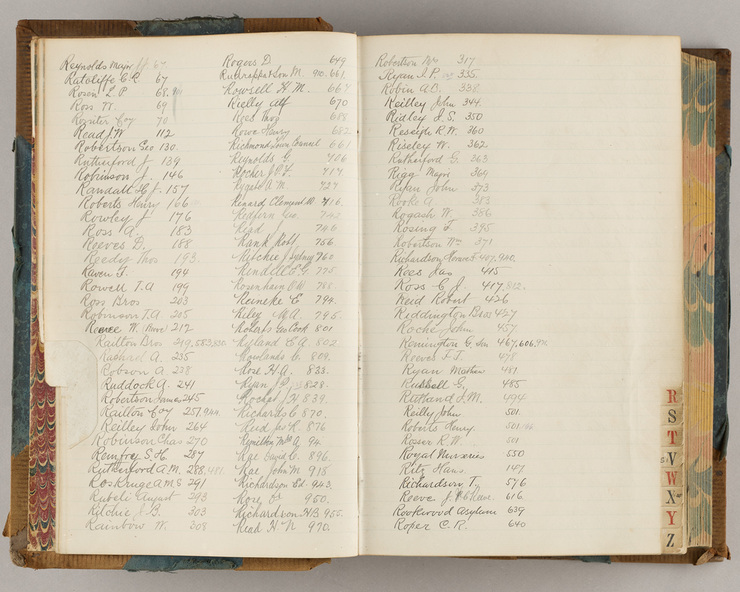 Reynolds Major 67
Ratcliffe C.R. 67
Rosen L P 68
Ross W. 69
Rossiter Coy 70
Read J.W 112
Robertson Geo 130
Rutherford J 139
Robinson J. 146
Randall H J. 157
Roberts Henry 166
Rowley J 176
Ross A. 183
Reeves D. 188
Reedy Thos 193.
Raven F. 194
Rowell T.A 199
Ross Bros 203
Robinson T.A 205
Reeve W. 212
Railton Bros 219, 583,
Rachael A. 235
Robson A 238
Ruddock A. 241
Robertson James 245
Railton Coy 257,
Reilley John 264
Robinson Chas 270
Renfrey S.H. 287
Rutherford A.M. 288,
291
Rubeli August 293
Ritchie J.B. 303
Rainbow W. 308
Rogers D 649
661
Rowsell H.M. 667
Rielly Alf 670
Reed Thos 618
Rowe Henry 682
Richmond Town Council 661
Reynolds G. 706
Rocher J.C.F. 717
Rogers A M. 727
Renard Clement W 716
Redfern Geo.
Reid 746
Rank Robt 756
Ritchie J Sydney 760
Rendell F.G 775
Rosenhain 785
Reineke E 794
Riley M.A. 795
Roberts Geo Cook 801
Ryland C A 802
Rowlands C. 809.
Rose H.A. 833.
Ryan J. 828.
Roche J H 839.
Richards C 870.
Reid Jos R 876
Remilton Mrs A, 94.
Rae David C. 896.
Rae John M 918
Richardson Ed. 943.
950.
Richardson H.B. 955.
Read H N 970.
Robertson Wm 317
Ryan J.P. 335
Robin A.C. 338
Reilley John 344.
Ridley J.S. 350
Reseigh R.W. 360
Riseley W. 362
Rutherford G. 363
Rigg Major 364
Ryan John 373
Rooke A 383
Rogash W 386
Rosing F. 395
Robertson Wm. 371
Richardson 407, 940.
Roes Jas 415
Ross C. J. 417, 812.
Reid Robert 426
Reddington Bros 427
Roche John 457
Remington G. Sen 467, 606,
Rowe F.T. 478
Ryan Martin 481
Russell G, 485
Rutland J.M. 494
Reilly John 501.
Roberts Henry 501,
Roser R.W. 501
Royal Nurseries 550
Ritz Hans. 149
Richardson T. 576
Reeve J 616
Rookwood Asylum 639
Roper C.R. 640
R
S
T
V
W
X
Y
Z